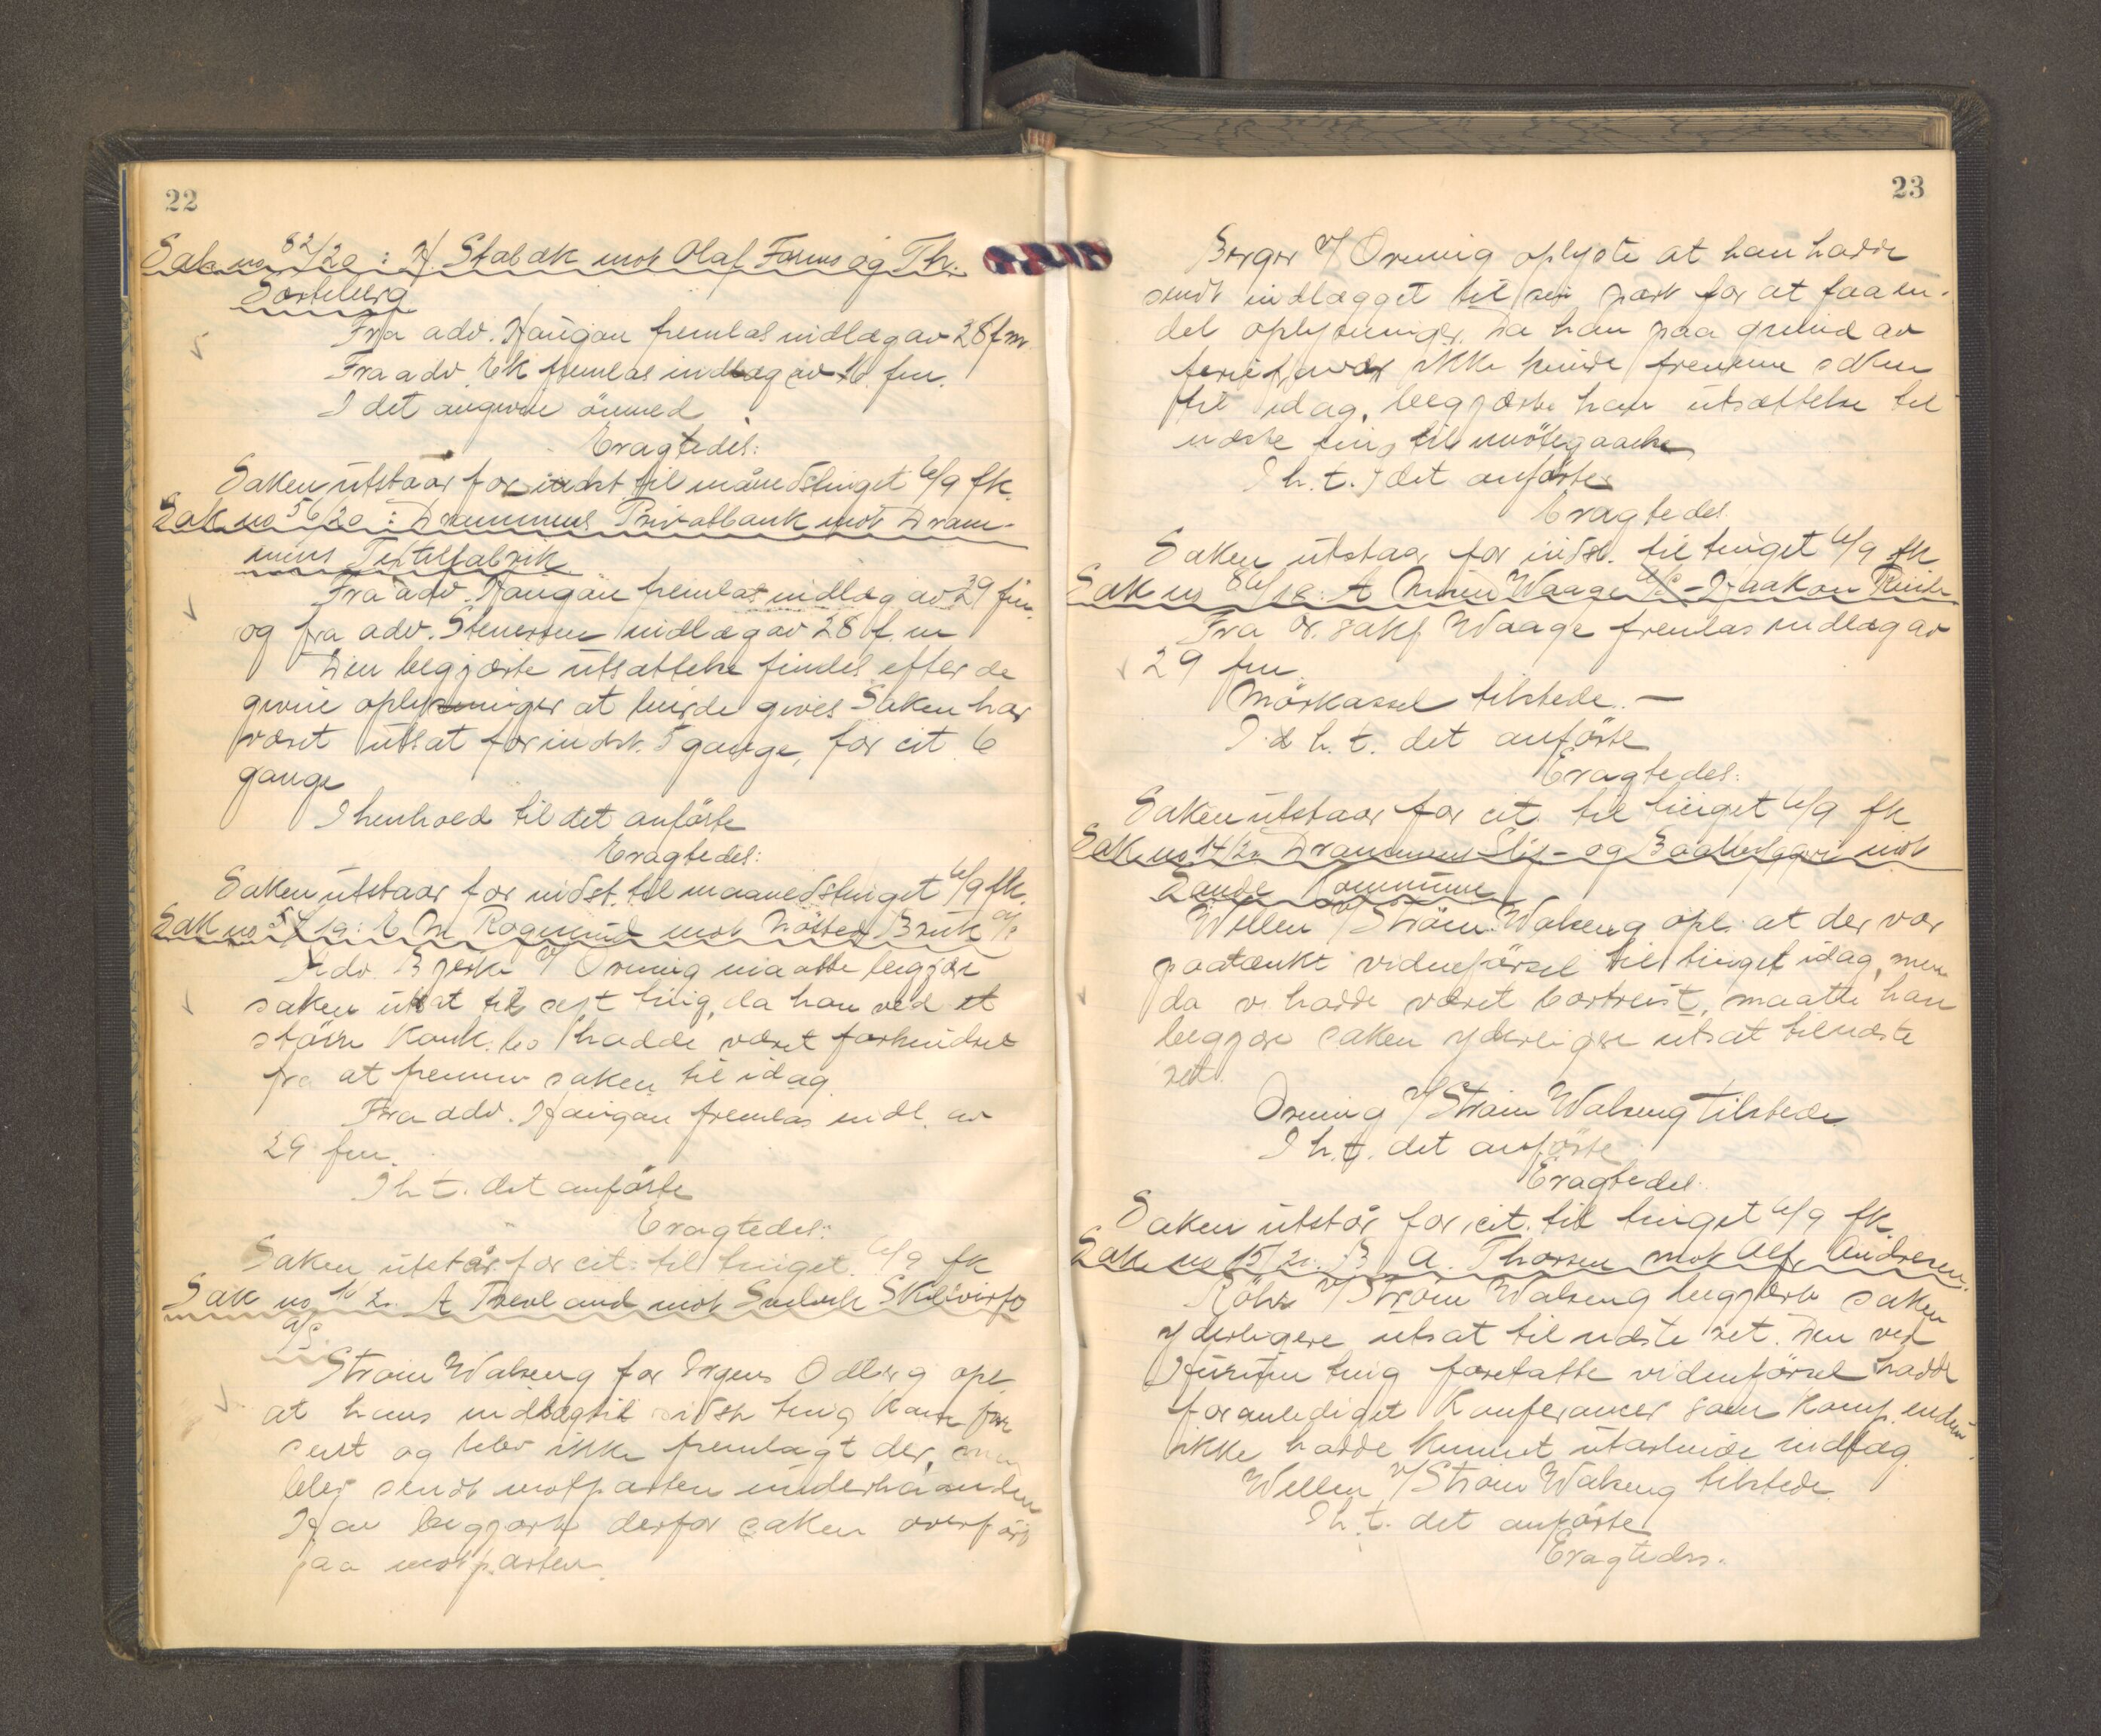 22
Sak no 82/20: H. Stabæk mot Olaf Forus og Th.
Sørteberg
Fra adv. Haugan fremlas indlæg av 28 f m
Fra adv. Ek fremlas indlæg av 16. fm.
I det angivne ömmed
Eragtedes:
Saken utstaar for indst til månedstinget 6/9 fk.
Sak no 56/20: Drammens Privatbank mot Dram-
mens Textilfabrik
Fra adv. Haugan fremlas indlæg av 29 fm.
og fra adv. Stenersen indlæg av 28 f. m
Den begjærte utsættelse findes efter de
givne oplysninger at burde gives Saken har
været utsat for indst. 5 gange, for cit. 6
gange
I henhold til det anförte
Eragtedes:
Saken utstaar for indst. til maanedstinget 6/9 fk.
Sak no 54/19: E M Rognerud mot Nösted Bruk A/S
Adv. Bjerke v/ Orning maatte begjære
saken utsat til nest ting, da han ved et
större Konk. bo hadde været forhindret
fra at fremme saken til idag.
Fra adv. Haugan fremlas indl. av
29 fm.
I h t. det anförte
Eragtedes:
Saken utstår for cit. til tinget 6/9 fk
Sak no 16/20 A Treeland mot Svelvik Skibsverft
A/S.
Strøm Walseng for Odberg opl.
at hans indlæg til sidste ting kom for
sent og blev ikke fremlagt der, men
blev sendt motparten underhaanden
Han begjærte derfor saken overfört
paa motparten.
23
Berger v/ Orning oplyste at han hadde
sendt indlægget til sin part for at faa en-
del oplysninger. Da han paa grund av
ikke kunde fremme saken
til idag, begjærte han utsættelse til
næste ting til imötegaaelse
I h. t. det anförte
Eragtedes
Saken utstaar for indst. til tinget 6/9 fk
Sak no 86/18: A Waage A/S - Haakon
Fra or. sakf Waage fremlas indlæg av
29 fm.
Mörkassel tilstede. —
I h. t. det anförte
Eragtedes:
Saken utstaar for cit til tinget 6/9 fk
Sak no 14/20 Drammens Slip- og Baatbyggeri mot
Sande Kommune
Willen v/ Ström Walseng opl. at der var
paatænkt vidneförsel til tinget idag, men
da vi hadde været bortreist, maatte han
begjære saken yderligere utsat til næste
ret.
Orning v/ Strøm Walseng tilstede
I h. t. det anförte
Eragtedes.
Saken utstår for cit. til tinget 6/9 fk
Sak no 15/20. B A. Thorsen mot Alf Andresen.
Röhr v/ Strøm Walseng begjærte saken
yderligere utsat til næste ret. Den ved
Hurum ting foretatte vidneförsel hadde
foranlediget Konferancer som Komp. endnu
ikke hadde kunnet utarbeide indlæg.
Willen v/ Strøm Walseng tilstede
I h. t. det anförte
Eragtedes.